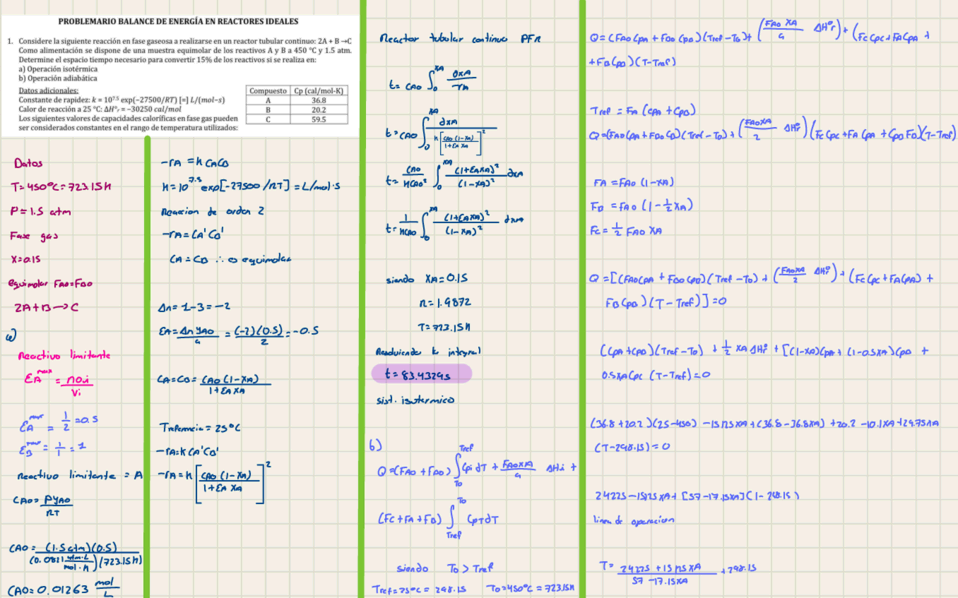 PROBLEMARIO BALANCE DE ENERGÍA EN REACTORES IDEALES
1. Considere la siguiente reacción en fase gaseosa a realizarse en un reactor tubular continuo: 2A + B →C
Como alimentación se dispone de una muestra equimolar de los reactivos A y B a 450 °C y 1.5 atm.
Determine el espacio tiempo necesario para convertir 15% de los reactivos si se realiza en:
a) Operación isotérmica
b) Operación adiabática
Datos adicionales:
Constante de rapidez: k = 10^7.5 exp(-27500/RT) [=] L/(mol-s)
Calor de reacción a 25 °C: ΔH°r = -30250 cal/mol
Los siguientes valores de capacidades caloríficas en fase gas pueden
ser considerados constantes en el rango de temperatura utilizados:
Compuesto Cp (cal/mol-K)
A 36.8
B 20.2
C 59.5
Datos
T=450°C=723.15K
P=1.5 atm
Fase gas
X=0.15
equimolar FAO=FBO
2A+B→C
a)
Reactivo limitante
EA^max = noi/Vi
EA^max = 1/2 = 0.5
EB^max = 1/1 = 1
Reactivo limitante = A
CAO= PyAO/RT
CAO= (1.5 atm)(0.5)/(0.0821 atm·L/mol·K)(723.15K)
CAO=0.01263 mol/L
-rA=kCACB
k=10^7.5 exp[-27500/RT]=L/mol·s
Reaccion de orden 2
-rA=CA'CB'
CA=CB ∴ equimolar
Δn=1-3=-2
EA= Δn yAO/a = (-2)(0.5)/2 = -0.5
CA=CB= CAO(1-XA)/1+EAXA
Treferencia= 25°C
-rA=kCA'CB'
-rA=k[CAO(1-XA)/1+EAXA]²
Reactor tubular continuo PFR
t=CAO∫0^XA dXA/-rA
t=CAO∫0^XA dXA/k[CAO(1-XA)/1+EAXA]²
t= CAO/kCAO² ∫0^XA (1+EAXA)²/(1-XA)² dXA
t= 1/kCAO ∫0^XA (1+EAXA)²/(1-XA)² dXA
siendo XA=0.15
R=1.9872
T=723.15K
Resolviendo la integral
t=83.4324s
sist. isotermico
b)
Q=(FAO+FBO)∫To^Tref Cpi dT + FAOXA/a ΔHi +
(FC+FA+FB)∫Tref^To CpT dT
siendo To>Tref
Tref=25°C=298.15 To=450°C=723.15K
Q=(FAO CpA+FBO CpB)(Tref-To)+(FAO XA/a ΔH°r)+(FC CpC+FA CpA+
+FB CpB)(T-Tref)
Tref=FA(CpA+CpB)
Q=(FAO CpA+FBO CpB)(Tref-To)+(FAOXA/2 ΔH°r)(FC CpC+FA CpA+CpB FB)(T-Tref)
FA=FAO(1-XA)
FB=FAO(1-½XA)
FC=½FAO XA
Q=[(FAO CpA+FBO CpB)(Tref-To)+(FAOXA/2 ΔH°r)+(FC CpC+FA CpA)+
FB CpB)(T-Tref)]=0
(CpA+CpB)(Tref-To)+½XA ΔH°r+[(1-XA)CpA+(1-0.5XA)CpB+
0.5XACpC(T-Tref)=0
(36.8+20.2)(25-450)-15125XA+(36.8-36.8XA)+20.2-10.1XA+29.75XA
(T-298.15)=0
24225-15125XA+[57-17.15XA](T-298.15)
linea de operacion
T= 24225+15125XA/57-17.15XA +298.15